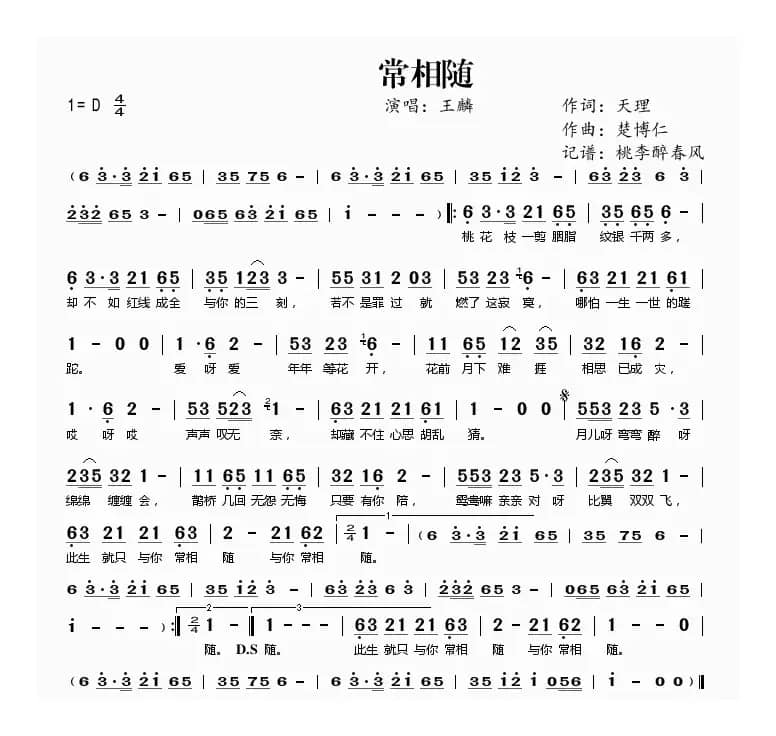 常相随
1= D 4/4 演唱：王麟 作词：天理
作曲：楚博仁
记谱：桃李醉春风
( 6 3·3 21 65 | 35 75 6 - | 6 3·3 21 65 | 35 12 3 - | 63 23 6 3 |
232 65 3 - | 065 63 21 65 | 1 - - - ) ‖: 6 3·3 21 65 | 35 65 6 - |
桃 花 枝 一剪 胭脂 纹银 千两 多，
6 3·3 21 65 | 35 123 3 - | 55 31 2 03 | 53 23 16 - | 63 21 21 61 |
却 不 如 红线 成全 与你 的三 刻， 若不 是罪 过 就 燃了 这寂 寞， 哪怕 一生 一世 的蹉
1 - 0 0 | 1 · 6 2 - | 53 23 16 - | 11 65 12 35 | 32 16 2 - |
跎。 爱 呀 爱 年年 等花 开， 花前 月下 难 捱 相思 已成 灾，
1 · 6 2 - | 53 523 21 - | 63 21 21 61 | 1 - 0 0 | 553 23 5 ·3 |
哎 呀 哎 声声 叹无 奈， 却藏 不住 心思 胡乱 猜。 月儿呀 弯弯 醉 呀
235 32 1 - | 11 65 11 65 | 32 16 2 - | 553 23 5·3 | 235 32 1 - |
绵绵 缠缠 会， 鹊桥 几回 无怨 无悔 只要 有你 陪， 鸳鸯嘛 亲亲 对 呀 比翼 双双 飞，
1
63 21 21 63 | 2 - 21 62 | 2/4 1 - | ( 6 3·3 21 65 | 35 75 6 - |
此生 就只 与你 常相 随 与你 常相 随。
6 3·3 21 65 | 35 12 3 - | 63 23 6 3 | 232 65 3 - | 065 63 21 65 |
2 3
1 - - - ) :‖ 2/4 1 - ‖ 1 - - - | 63 21 21 63 | 2 - 21 62 | 1 - - 0 |
随。 D.S 随。 此生 就只 与你 常相 随 与你 常相 随。
( 6 3·3 21 65 | 35 75 6 - | 6 3·3 21 65 | 35 12 1 056 | 1 - 0 0 ) ‖